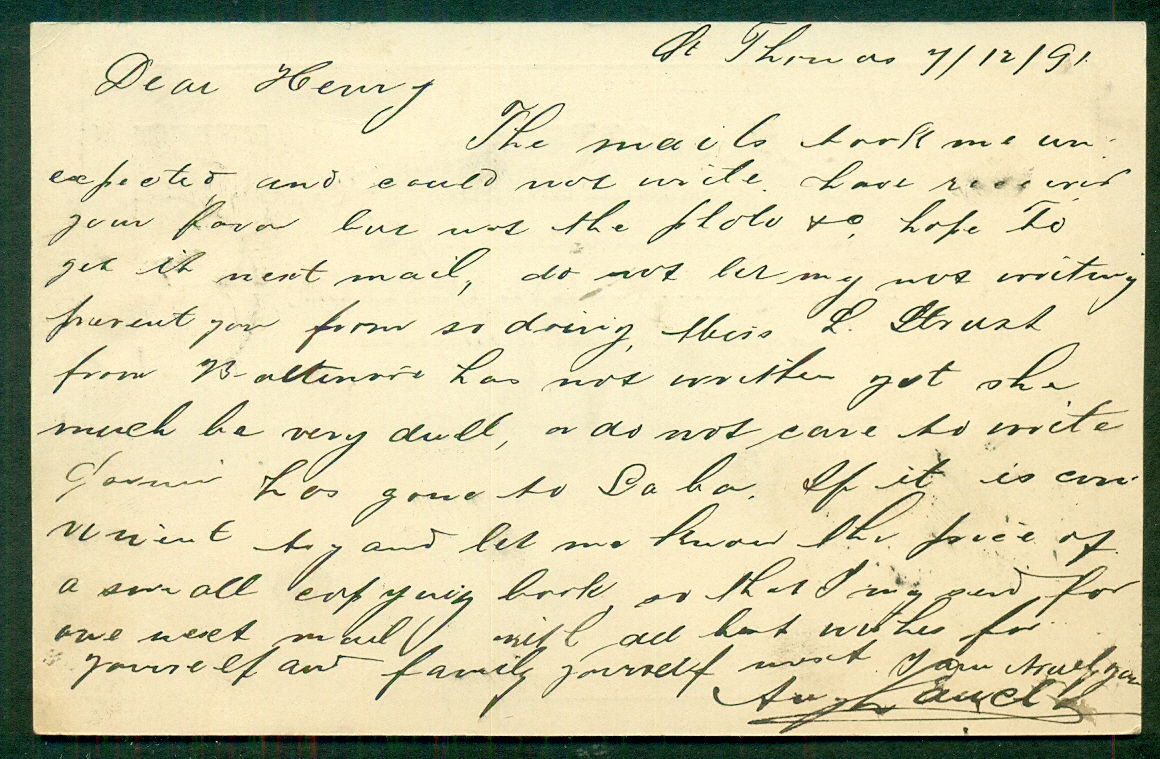 St Thomas 7/12/91
Dear Henry
The mails took me un-
expected and could not write. have received
your favor but not the photo &c, hope to
get it next mail, do not let my not writing
prevent you from so doing, Miss L. Strust
from Baltimore has not written yet she
much be very dull, or do not care to write
has gone to Saba. If it is con-
venient try and let me know the price of
a small copying book, so that I my send for
one next mail, with all best wishes for
yourself and family yourself most. I am truly yours
Aug